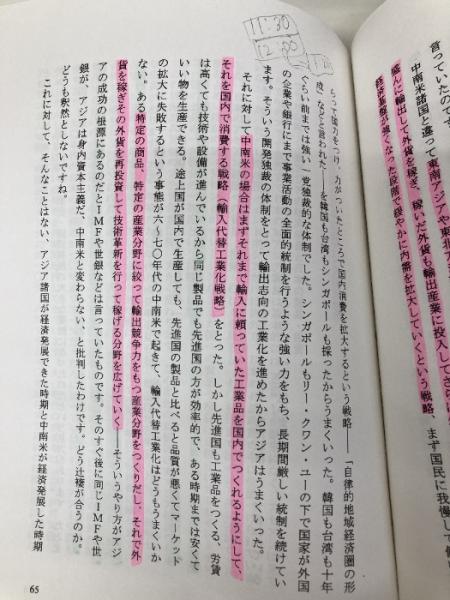 11:30
12:00
言っていたので
中南米諸国と違って東南アジアや東北ア
盛んに輸出して外貨を稼ぎ、稼いだ外貨も輸出産業に投入してさら
経済基盤が強くなった段階で緩やかに内需を拡大していくという戦略、
まず国民に我慢して
ちつて協力をつけ、力がついたところで国内消費を拡大するという戦略――「自律的地域経済圏の形
成」などと言われた――を韓国も台湾もシンガポールも採ったからうまくいった。韓国も台湾も十年
ぐらい前までは強い一党独裁的な体制でした。シンガポールもリー・クワン・ユーの下で国家が外国
の企業や銀行にまで事業活動の全面的統制を行うような強い力をもち、長期間厳しい統制を続けてい
ます。そういう開発独裁の体制をとって輸出志向の工業化を進めたからアジアはうまくいった。
それに対して中南米の場合はまずそれまで輸入に頼っていた工業品を国内でつくれるようにして、
それを国内で消費する戦略（輸入代替工業化戦略）をとった。しかし先進国も工業品をつくる、労賃
は高くても技術や設備が進んでいるから同じ製品でも先進国の方が効率的で、ある時期までは安くて
いい物を生産できる。途上国が国内で生産しても、先進国の製品と比べると品質が悪くてマーケット
の拡大に失敗するという事態が六〜七〇年代の中南米で起きて、輸入代替工業化はどうもうまくいか
ない。ある特定の商品、特定の産業分野に絞って輸出競争力をもつ産業分野をつくりだし、それで外
貨を稼ぎその外貨を再投資して技術革新を行って稼げる分野を広げていく――そういうやり方がアジ
アの成功の根源にあるのだとＩＭＦや世銀などは言っていたものです。そのすぐ後に同じＩＭＦや世
銀が、アジアは身内資本主義だ、中南米と変わらない、と批判したわけです。どう辻褄が合うのか。
どうも釈然としないですね。
これに対して、そんなことはない、アジア諸国が経済発展できた時期と中南米が経済発展した時期
65